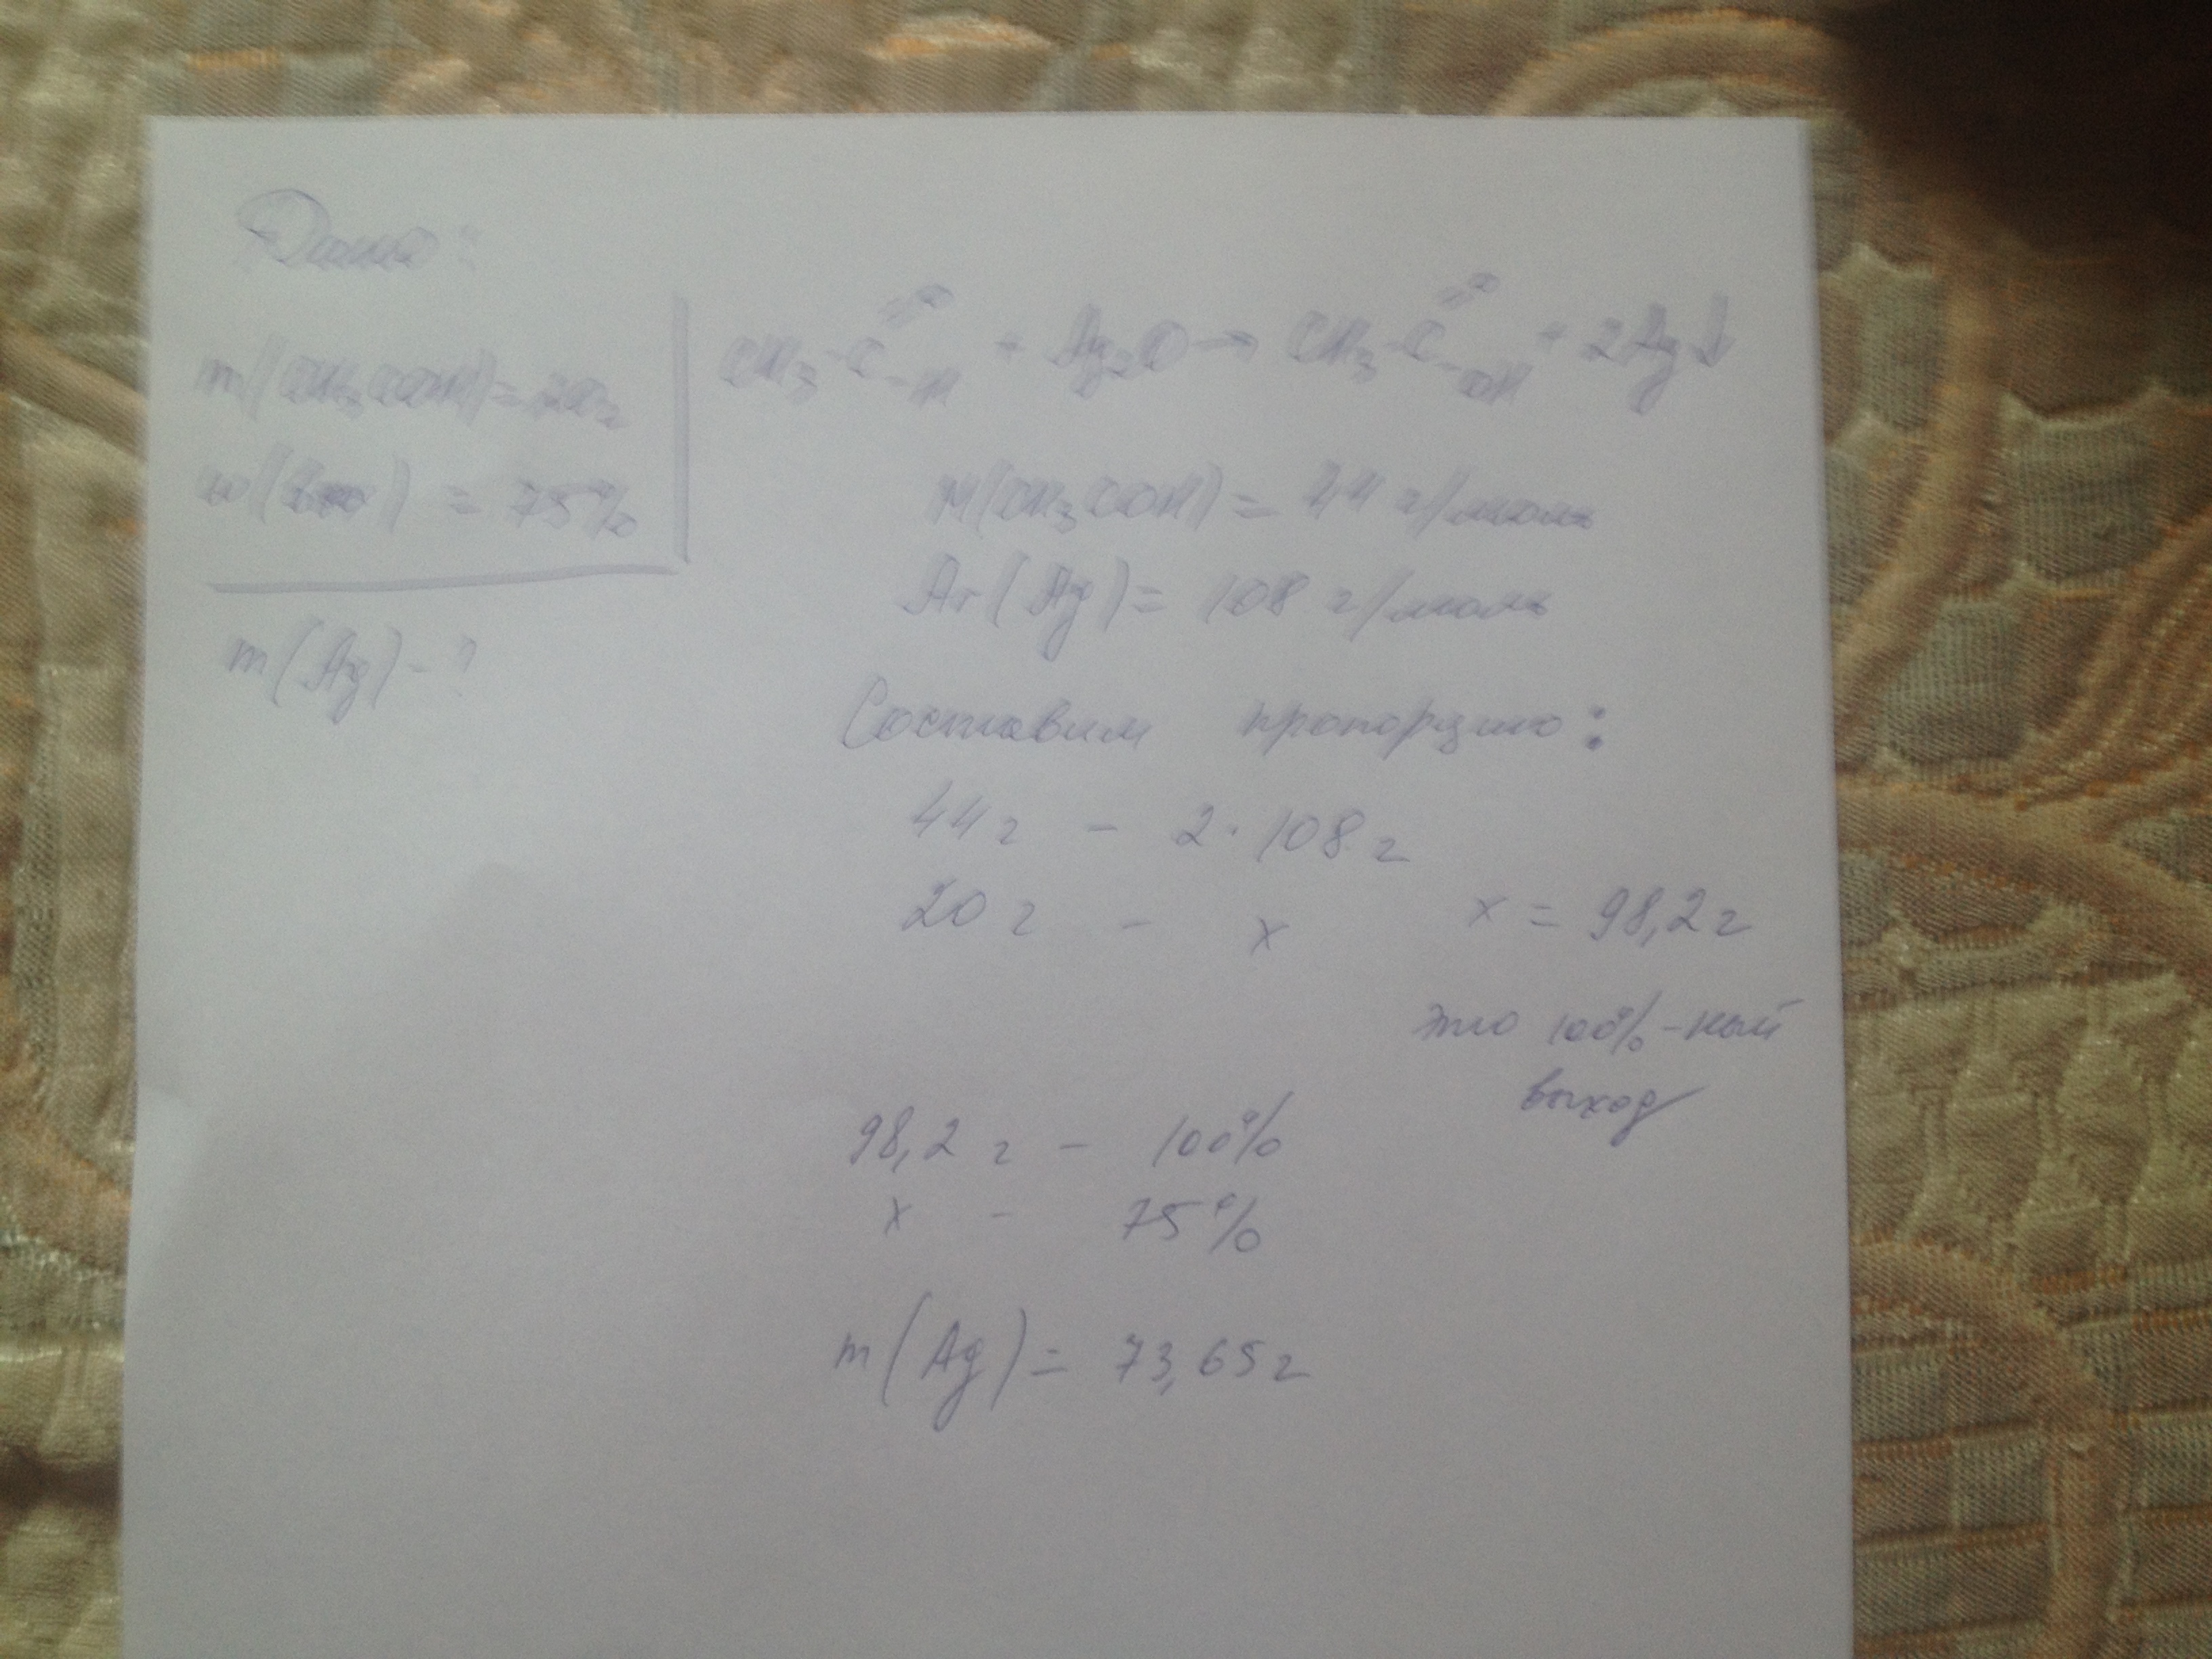 Дано:
m(CH₃COOH) = 20 г
w(вых) = 75%
m(Ag) - ?
CH₃-C(=O)-H + Ag₂O → CH₃-C(=O)-OH + 2Ag↓
M(CH₃COH) = 44 г/моль
Ar(Ag) = 108 г/моль
Составим пропорцию:
44 г - 2·108 г
20 г - x x = 98,2 г
это 100%-ный
выход
98,2 г - 100%
x - 75%
m(Ag) = 73,65 г